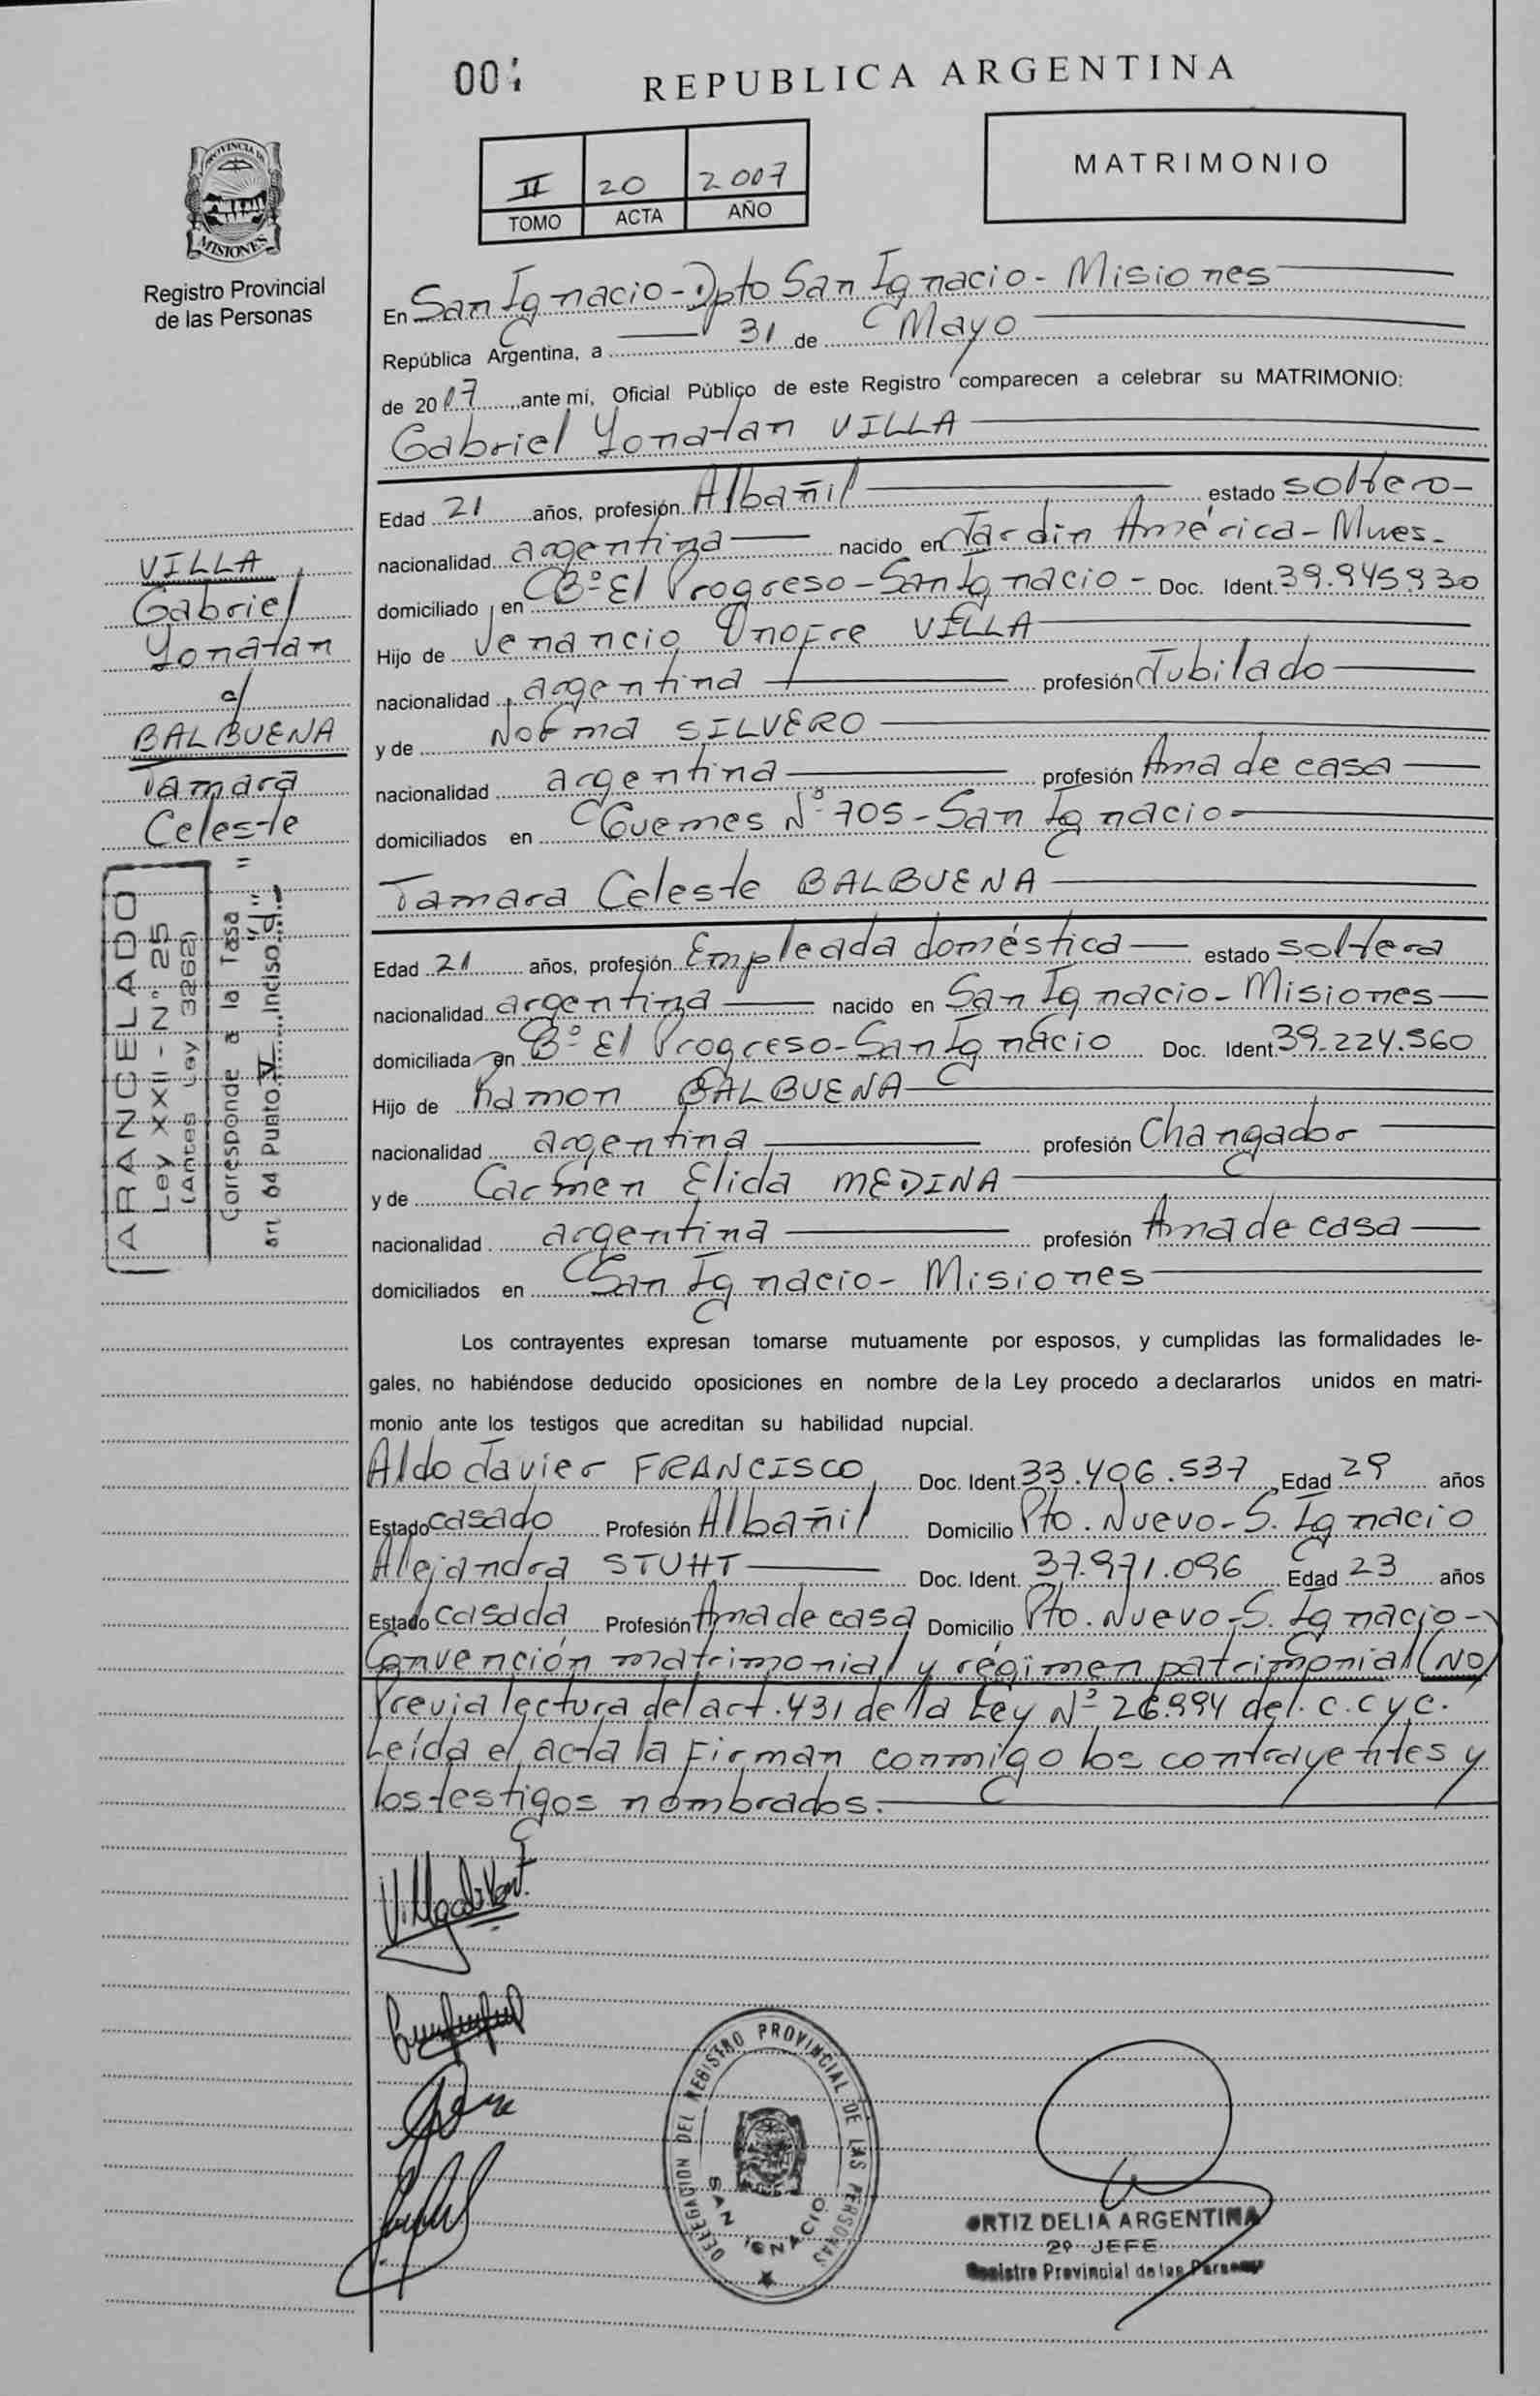 00
REPUBLICA ARGENTINA
II 20 2007
TOMO ACTA AÑO
MATRIMONIO
PROVINCIA DE
MISIONES
Registro Provincial
de las Personas
En San Ignacio - Dpto San Ignacio - Misiones
República Argentina, a 31 de Mayo
de 2007, ante mi, Oficial Público de este Registro comparecen a celebrar su MATRIMONIO:
Gabriel Yonatan VILLA
Edad 21 años, profesión Albañil estado soltero
nacionalidad argentina nacido en Jardin América - Mnes.
domiciliado en Bº El Progreso - San Ignacio - Doc. Ident. 39.945.930
Hijo de Venancio Onofre VILLA
nacionalidad argentina profesión Jubilado
y de Norma SILVERO
nacionalidad argentina profesión Ama de casa
domiciliados en Guemes Nº 705 - San Ignacio
Tamara Celeste BALBUENA
Edad 21 años, profesión Empleada doméstica estado soltera
nacionalidad argentina nacido en San Ignacio - Misiones
domiciliada en Bº El Progreso - San Ignacio Doc. Ident. 39.224.560
Hijo de Ramon BALBUENA
nacionalidad argentina profesión Changador
y de Carmen Elida MEDINA
nacionalidad argentina profesión Ama de casa
domiciliados en San Ignacio - Misiones
Los contrayentes expresan tomarse mutuamente por esposos, y cumplidas las formalidades le-
gales, no habiéndose deducido oposiciones en nombre de la Ley procedo a declararlos unidos en matri-
monio ante los testigos que acreditan su habilidad nupcial.
Aldo Javier FRANCISCO Doc. Ident. 33.406.537 Edad 29 años
Estado casado Profesión Albañil Domicilio Pto. Nuevo - S. Ignacio
Alejandra STUHT Doc. Ident. 37.971.096 Edad 23 años
Estado casada Profesión Ama de casa Domicilio Pto. Nuevo - S. Ignacio -
Convención matrimonial y régimen patrimonial (NO)
Previa lectura del art. 431 de la Ley Nº 26.994 del. C.C y C.
Leída el acta la firman conmigo los contrayentes y
los testigos nombrados.
VILLA
Gabriel
Yonatan
c/
BALBUENA
Tamara
Celeste
ARANCELADO
Ley XXII - Nº 25
(Antes Ley 3262)
Corresponde a la Tasa "
art 64 Punto V Inciso "d"
DELEGACION DEL REGISTRO PROVINCIAL DE LAS PERSONAS
SAN IGNACIO
ORTIZ DELIA ARGENTINA
2º JEFE
Registro Provincial de las Personas